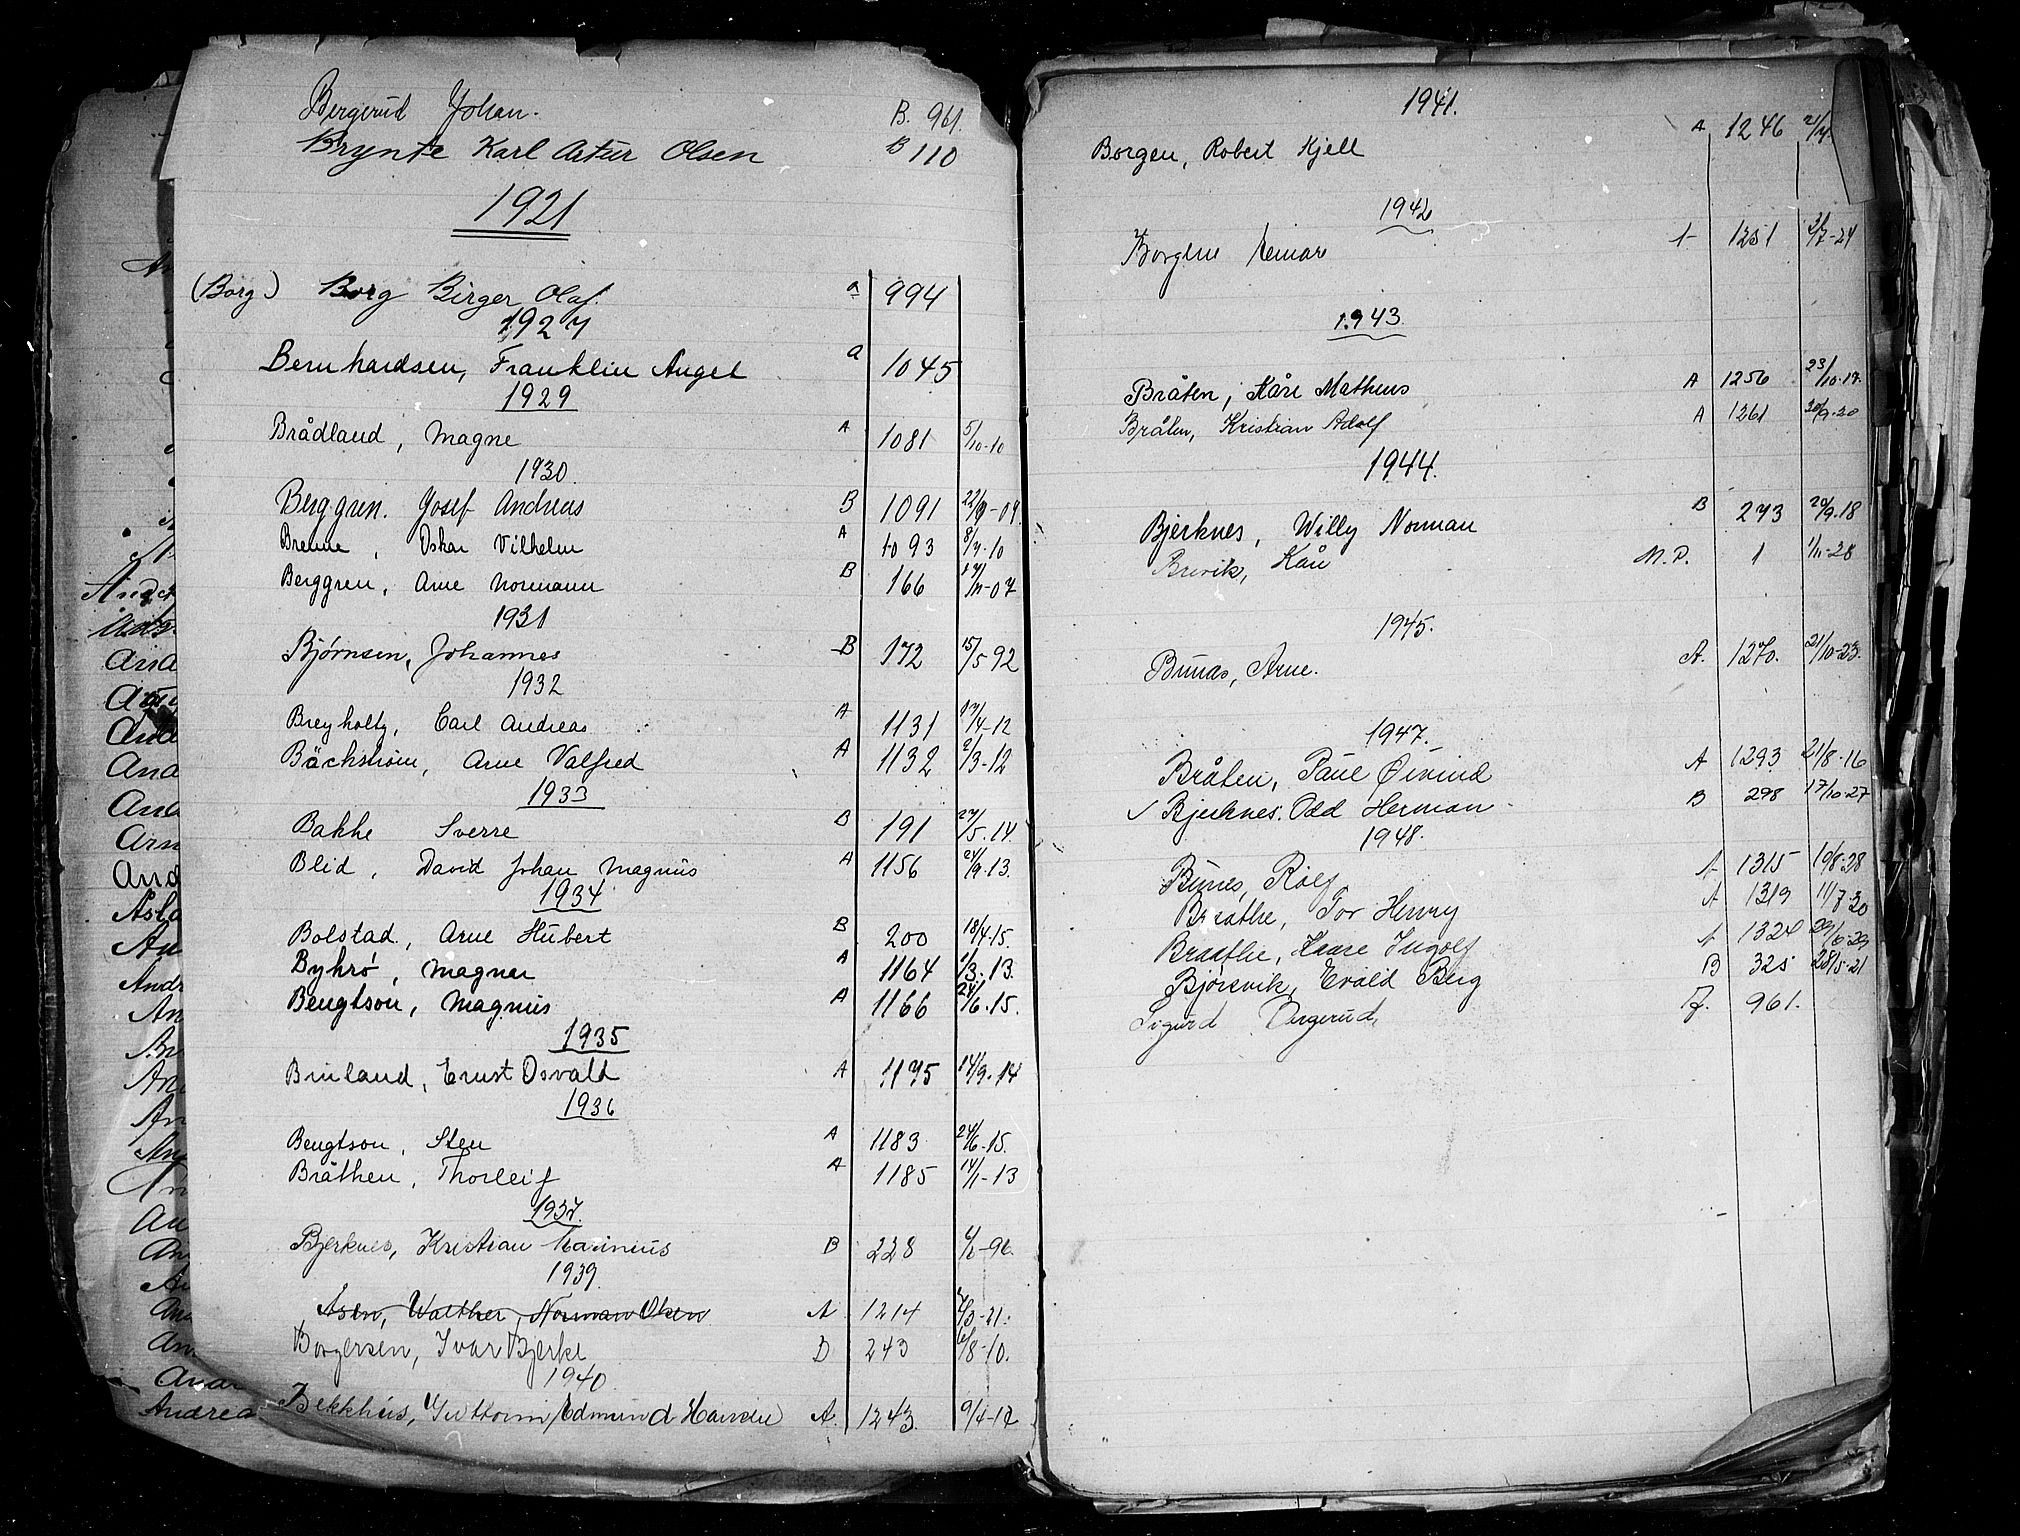 Bergerud Johan. B. 961.
Brynte Karl Artur Olsen B 110
1921
(Borg.) Borg Birger Olaf. a 994
1927
Bernhardsen, Franklin Angel a 1045
1929
Brådland, Magne A 1081 5/10-10
1930.
Berggren. Josef Andreas B 1091 22/9-04
Brenne, Oskar Vilhelm A 1093 8/7-10
Berggren, Arne Normann B 166 -07
1931
Bjørnsen, Johannes B 172 15/5 92
1932
Breyholtz, Carl Andreas A 1131 17/4-12
Bächstrøm, Arne Valfred A 1132 2/3-12
1933
Bakke Sverre B 191 27/5.14.
Blid, David Johan Magnus A 1156 24/9.13.
1934
Bolstad, Arne Hubert B 200 18/4.15.
Bykrø, Magnar A 1164 1/3.13.
Bengtson, Magnus A 1166 24/6.15.
1935
Bruland, Ernst Osvald A 1175 14/9.14
1936
Bengtson, Sten A 1183 24/6.15.
Bråthen, Thorleif A 1185 14/1-13
1937.
Bjerknes, Kristian Marinius B 228 -96.
1939.
Åsen, Walther Norman Olsen A 1214 /3-21.
Borgersen, Ivar Bjerke B 243 6/8-10.
1940.
Bekkhus, Guttorm Edmund A. 1243. 9/4-17
1941.
Borgen, Robert Kjell A 1246
1942
Borglin Reinar A 1251 /7-24
1943.
Bråten, Kåre Matheus A 1256 23/10.17.
Bråten, Kristian Adolf A 1261 30/9-20
1944.
Bjerknes, Willy Norman B 273 20/9.18
Brevik, Kåre M.P. 1 1/11-28
1945.
Bunæs, Arne. A. 1270. 21/10-23.
1947.
Bråten, Paul Øivind A 1293 21/8-16
✓ Bjerknes. Odd Herman B 298 17/10-27
1948.
Bunes, Rolf A 1315 19/8-28
Braathe, Tor Henry A 1319 11/7-30
Braathe, Kaare Ingolf A 1324 29/6-29
Bjørsvik, Evald Berg B 325 28/5-21
Sigurd Bergerud, 961.
Andrea